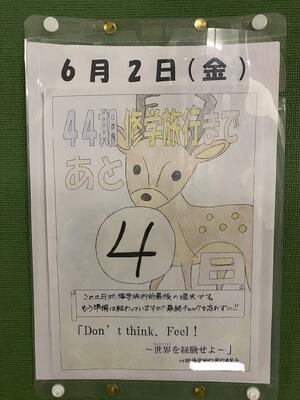 6月2日(金)
44期 修学旅行まで
あと
4
日
この土日が、修学旅行前最後の週末です。
もう準備は終わっていますか？最終チェックを忘れずに!!
「Don't think. Feel!
～世界を経験せよ～」